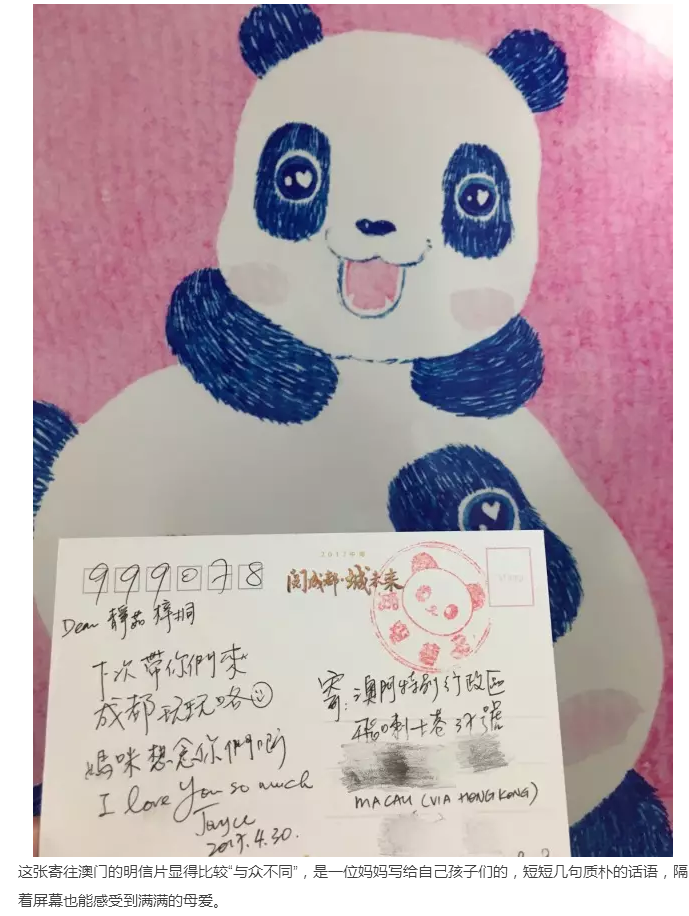 999078
Dear 靜茹 梓桐
下次帶你們來
成都玩玩咯
媽咪想念你們喲
I love you so much
Joyce
2017.4.30.
成都·城未来
STAMP
寄:澳門特別行政區
喇士巷 號
MACAU (VIA HONG KONG)
这张寄往澳门的明信片显得比较“与众不同”，是一位妈妈写给自己孩子们的，短短几句质朴的话语，隔
着屏幕也能感受到满满的母爱。